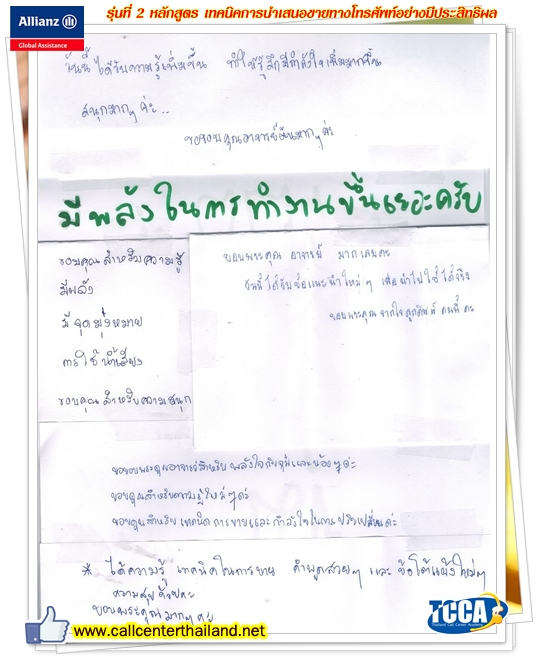 Allianz
Global Assistance
รุ่นที่ 2 หลักสูตร เทคนิคการนำเสนอขายทางโทรศัพท์อย่างมีประสิทธิผล
วันนี้ ได้รับความรู้เพิ่มขึ้น ทำให้รู้สึกมีกำลังใจเพิ่มมากขึ้น
สนุกมากๆ ค่ะ...
ขอขอบคุณอาจารย์ มากๆ ค่ะ
มีพลังในการทำงานขึ้นเยอะครับ
ขอบคุณสำหรับความรู้
มีพลัง
มีจุดมุ่งหมาย
การใช้น้ำเสียง
ขอบคุณสำหรับความสนุก
ขอบพระคุณ อาจารย์ มากเลยคะ
วันนี้ได้รับข้อแนะนำใหม่ๆ เพื่อนำไปใช้ได้จริง
ขอบพระคุณจากใจลูกศิษย์ คนนี้คะ
ขอขอบพระคุณอาจารย์สำหรับพลังใจ และน้องๆค่ะ
ขอบคุณสำหรับความรู้ใหม่ๆค่ะ
ขอบคุณสำหรับ เทคนิคการขายและกำลังใจในการ ค่ะ
* ได้ความรู้ เทคนิคในการขาย คำพูดสวยๆ และ ข้อโต้แย้งใหม่ๆ
ความสุขด้วยคะ
ขอบพระคุณมากๆ คะ
www.callcenterthailand.net
TCCA
Thailand Call Center Academy